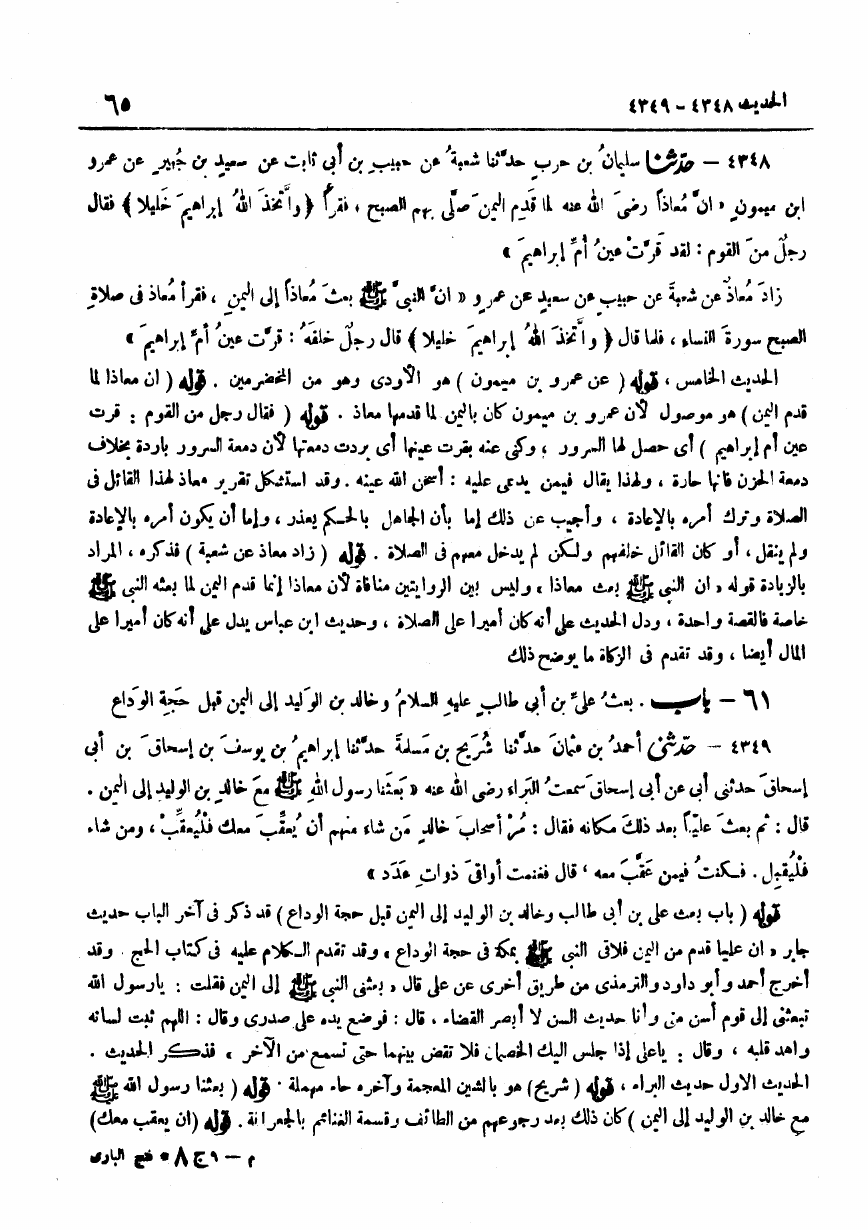 الحديث ٤٣٤٨ - ٤٣٤٩ ٦٥
٤٣٤٨ – حدّثنا سليمانُ بن حربٍ حدَّثنا شعبةُ عن حبيبِ بن أبي ثابت عن سعيدِ بن جُبيرٍ عن عمرو
ابن ميمونٍ « انَّ مُعاذاً رضىَ الله عنه لما قدِم اليمنَ صلَّى بهم الصبح ، فقرأ ﴿ واتَّخذَ اللهُ إبراهيمَ خَليلا ﴾ فقال
رجلٌ منَ القوم : لقد قَرَّتْ عينُ أمِّ إبراهيمَ »
زادَ مُعاذٌ عن شعبةَ عن حبيبٍ عن سعيدٍ عن عمرٍو « انَّ النبىَّ ﷺ بعثَ مُعاذاً إلى اليمنِ ، فقرأ مُعاذ فى صلاةِ
الصبح سورةَ النساء ، فلما قال ﴿ واتَّخذَ اللهُ إبراهيمَ خليلا ﴾ قال رجلٌ خلفَهُ : قرَّت عينُ أمِّ إبراهيمَ »
الحديث الخامس ، قوله ( عن عمرو بن ميمون ) هو الأودى وهو من المخضرمين . قوله ( ان معاذا لما
قدم اليمن ) هو موصول لأن عمرو بن ميمون كان باليمن لما قدمها معاذ . قوله ( فقال رجل من القوم : قرت
عين أم إبراهيم ) أى حصل لها السرور ، وكنى عنه بقرت عينها أى بردت دمعتها لأن دمعة السرور باردة بخلاف
دمعة الحزن فانها حارة ، ولهذا يقال فيمن يدعى عليه : أسخن الله عينه . وقد استشكل تقرير معاذ لهذا القائل فى
الصلاة وترك أمره بالإعادة ، وأجيب عن ذلك إما بأن الجاهل بالحكم يعذر ، وإما أن يكون أمره بالإعادة
ولم ينقل ، أو كان القائل خلفهم ولكن لم يدخل معهم فى الصلاة . قوله ( زاد معاذ عن شعبة ) فذكره ، المراد
بالزيادة قوله « ان النبى ﷺ بعث معاذا » وليس بين الروايتين منافاة لأن معاذا إنما قدم اليمن لما بعثه النبى ﷺ
خاصة فالقصة واحدة ، ودل الحديث على أنه كان أميرا على الصلاة ، وحديث ابن عباس يدل على أنه كان أميرا على
المال أيضا ، وقد تقدم فى الزكاة ما يوضح ذلك
٦١ – باب . بعثُ علىِّ بن أبي طالبٍ عليهِ السلامُ وخالد بن الوَليد إلى اليمن قبلَ حَجةِ الوَداع
٤٣٤٩ – حدّثنى أحمدُ بن عثمانَ حدَّثنا شُرَيح بن مَسلمةَ حدَّثنا إبراهيمُ بن يوسفَ بن إسحاقَ بن أبى
إسحاقَ حدثنى أبى عن أبى إسحاق سَمعتُ البَراء رضى الله عنه « بَعثَنا رسول اللهِ ﷺ معَ خالدِ بن الوليدِ إلى اليمن .
قال : ثم بعثَ عليّاً بعد ذلكَ مكانه فقال : مُرْ أصحابَ خالدٍ مَن شاء منهم أن يُعقِّبَ معك فلْيُعقِّبْ ، ومن شاء
فلْيُقبِل . فكنتُ فيمن عَقَّبَ معه ، قال فغنمت أواقىَ ذواتِ عَدَد »
قوله ( باب بعث على بن أبى طالب وخالد بن الوليد إلى اليمن قبل حجة الوداع ) قد ذكر فى آخر الباب حديث
جابر « ان عليا قدم من اليمن فلاقى النبى ﷺ بمكة فى حجة الوداع » وقد تقدم الكلام عليه فى كتاب الحج . وقد
أخرج أحمد وأبو داود والترمذى من طريق أخرى عن على قال « بعثنى النبى ﷺ إلى اليمن فقلت : يارسول الله
تبعثنى إلى قوم أسن منى وأنا حديث السن لا أبصر القضاء ، قال : فوضع يده على صدرى وقال : اللهم ثبت لسانه
واهد قلبه ، وقال : ياعلى إذا جلس اليك الخصمان فلا تقض بينهما حتى تسمع من الآخر » فذكر الحديث .
الحديث الاول حديث البراء ، قوله ( شريح ) هو بالشين المعجمة وآخره حاء مهملة . قوله ( بعثنا رسول الله ﷺ
مع خالد بن الوليد إلى اليمن ) كان ذلك بعد رجوعهم من الطائف وقسمة الغنائم بالجعرانة . قوله ( ان يعقب معك )
م – ٩ ج ٨ * فتح البارى